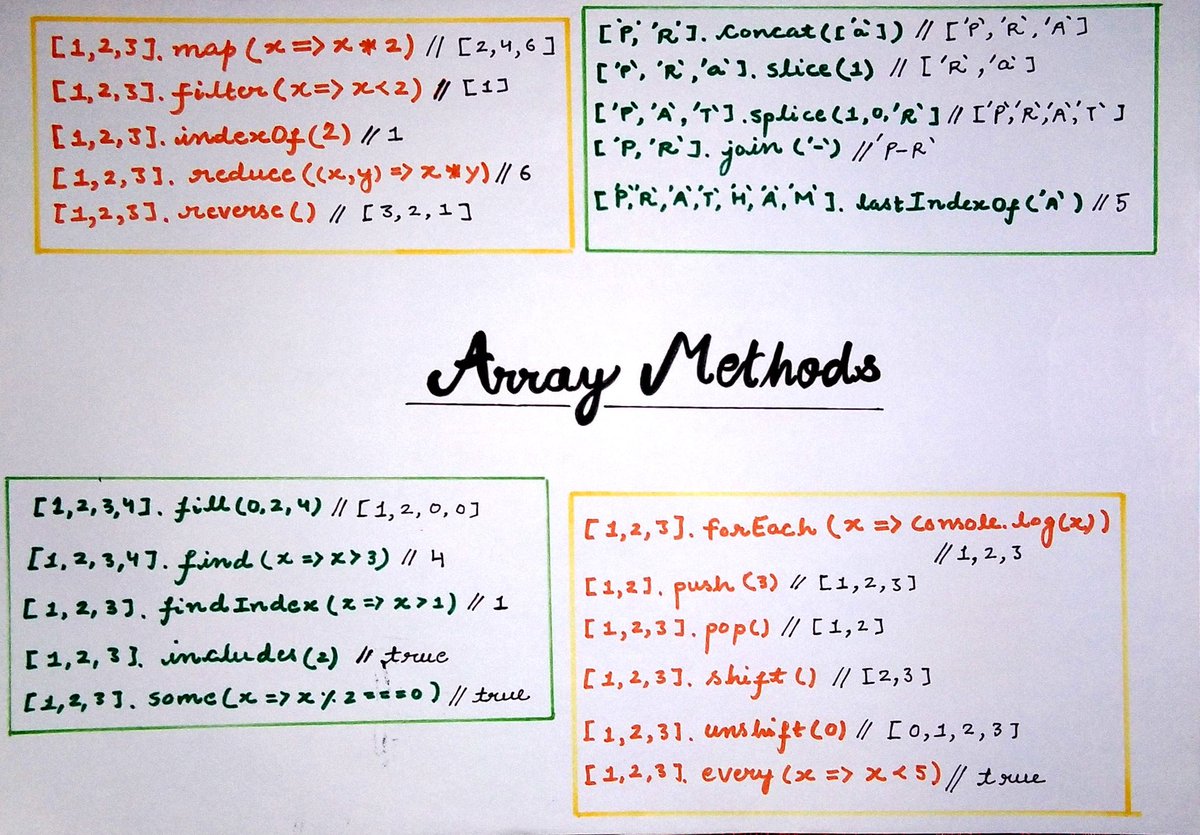 [1,2,3]. map(x=>x*2) // [2,4,6]
[1,2,3]. filter(x=>x<2) // [1]
[1,2,3]. indexOf(2) // 1
[1,2,3]. reduce((x,y)=>x*y) // 6
[1,2,3]. reverse() // [3,2,1]
['P', 'R']. concat(['a']) // ['P','R','A']
['P', 'R','a']. slice(1) // ['R','a']
['P','A','T'].splice(1,0,'R'] // ['P','R','A','T']
['P, 'R']. join('-') // 'P-R'
['P','R','A','T,'H','A','M']. lastIndexOf('A') // 5
Array Methods
[1,2,3,4]. fill(0,2,4) // [1,2,0,0]
[1,2,3,4]. find(x=>x>3) // 4
[1,2,3]. findIndex(x=>x>1) // 1
[1,2,3]. includes(2) // true
[1,2,3]. some(x=>x%2===0) // true
[1,2,3]. forEach(x=>console.log(x))
// 1,2,3
[1,2]. push(3) // [1,2,3]
[1,2,3]. pop() // [1,2]
[1,2,3]. shift() // [2,3]
[1,2,3]. unshift(0) // [0,1,2,3]
[1,2,3]. every(x=>x<5) // true